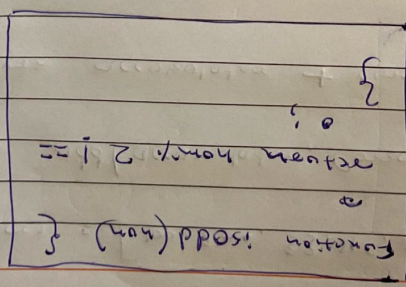 function isOdd(num) {
return num % 2 !==
0;
}